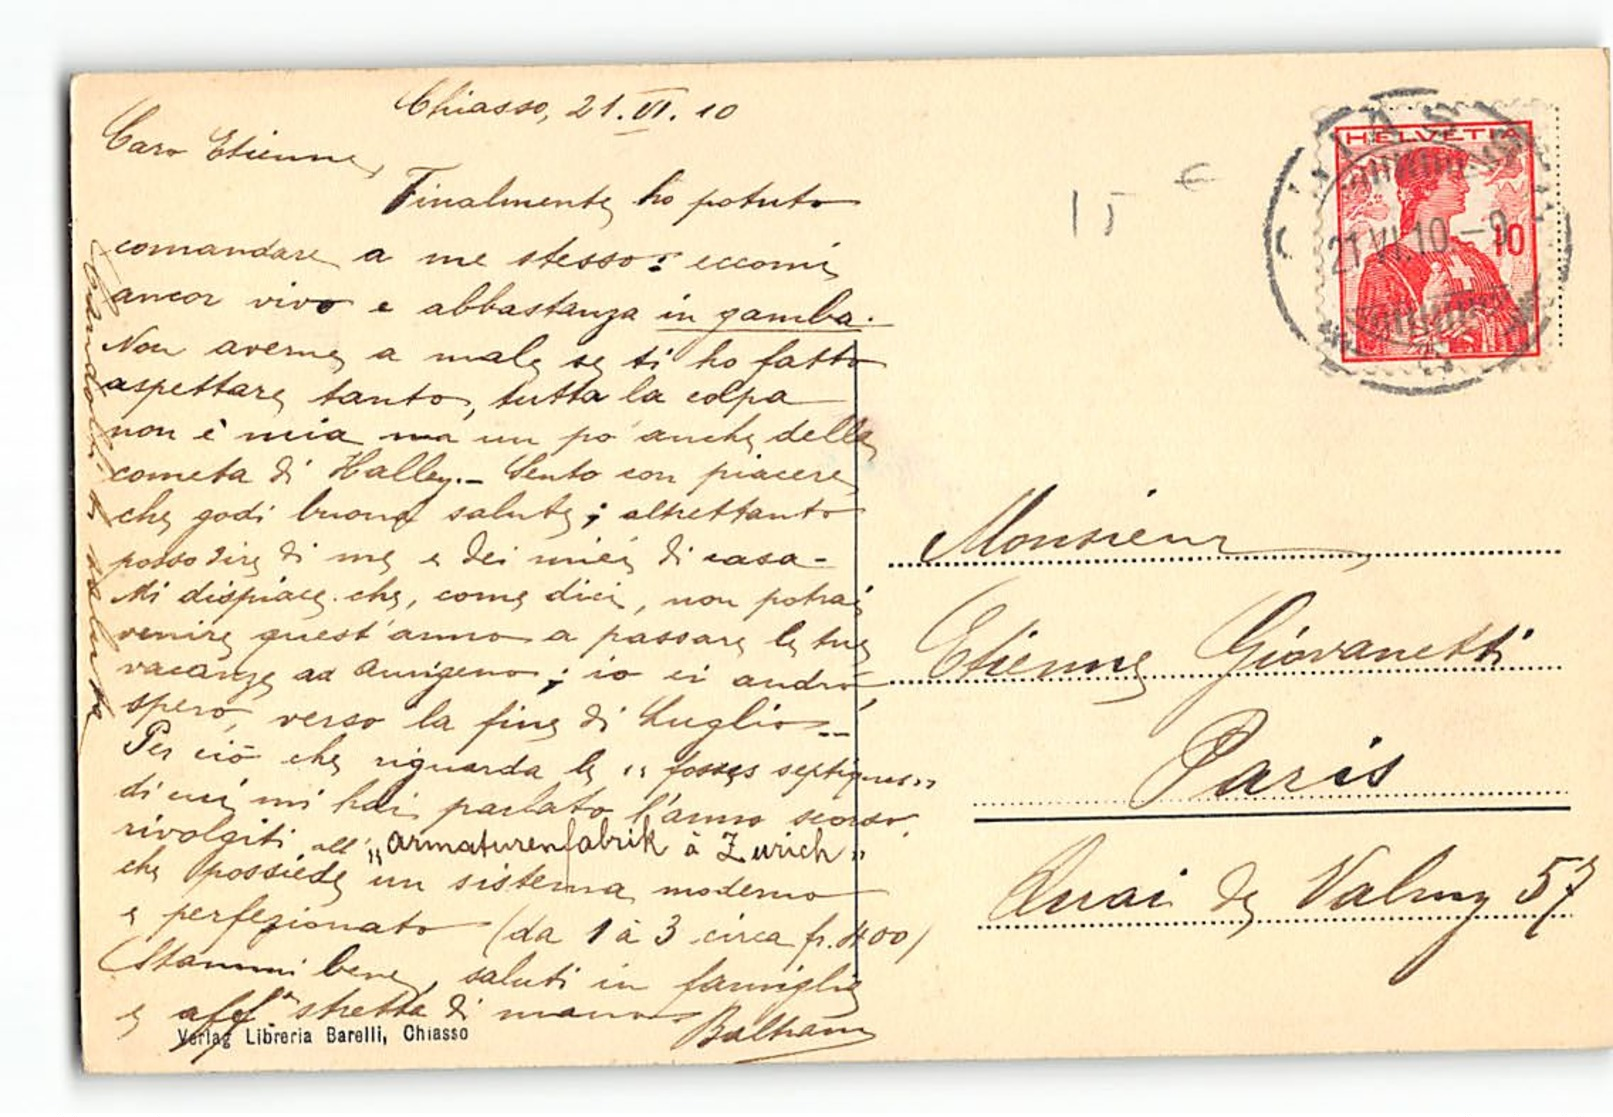 Chiasso, 21.VI.10
Caro Etienne,
Finalmente ho potuto
comandare a me stesso: eccomi
ancor vivo e abbastanza in gamba.
Non averne a male se ti ho fatto
aspettare tanto, tutta la colpa
non è mia ma un po' anche della
cometa di Halley.- Sento con piacere
che godi buona salute; altrettanto
posso dire di me e dei miei di casa-
Mi dispiace che, come dici, non potrai
venire quest'anno a passare le tue
vacanze ad Aurigeno; io ci andrò,
spero, verso la fine di Luglio--
Per ciò che riguarda le "fosses septiques"
di cui mi hai parlato l'anno scorso,
rivolgiti all' "Armaturenfabrik à Zurich"
che possiede un sistema moderno
e perfezionato (da 1 à 3 circa fr. 400)
Stammi bene, saluti in famiglia
e aff.a stretta di mano
Beltrami
ti saluta
Verlag Libreria Barelli, Chiasso
15 €
HELVETIA
10
21.VI.10.-9
Monsieur
Etienne Giovanetti
Paris
Quai de Valmy 57